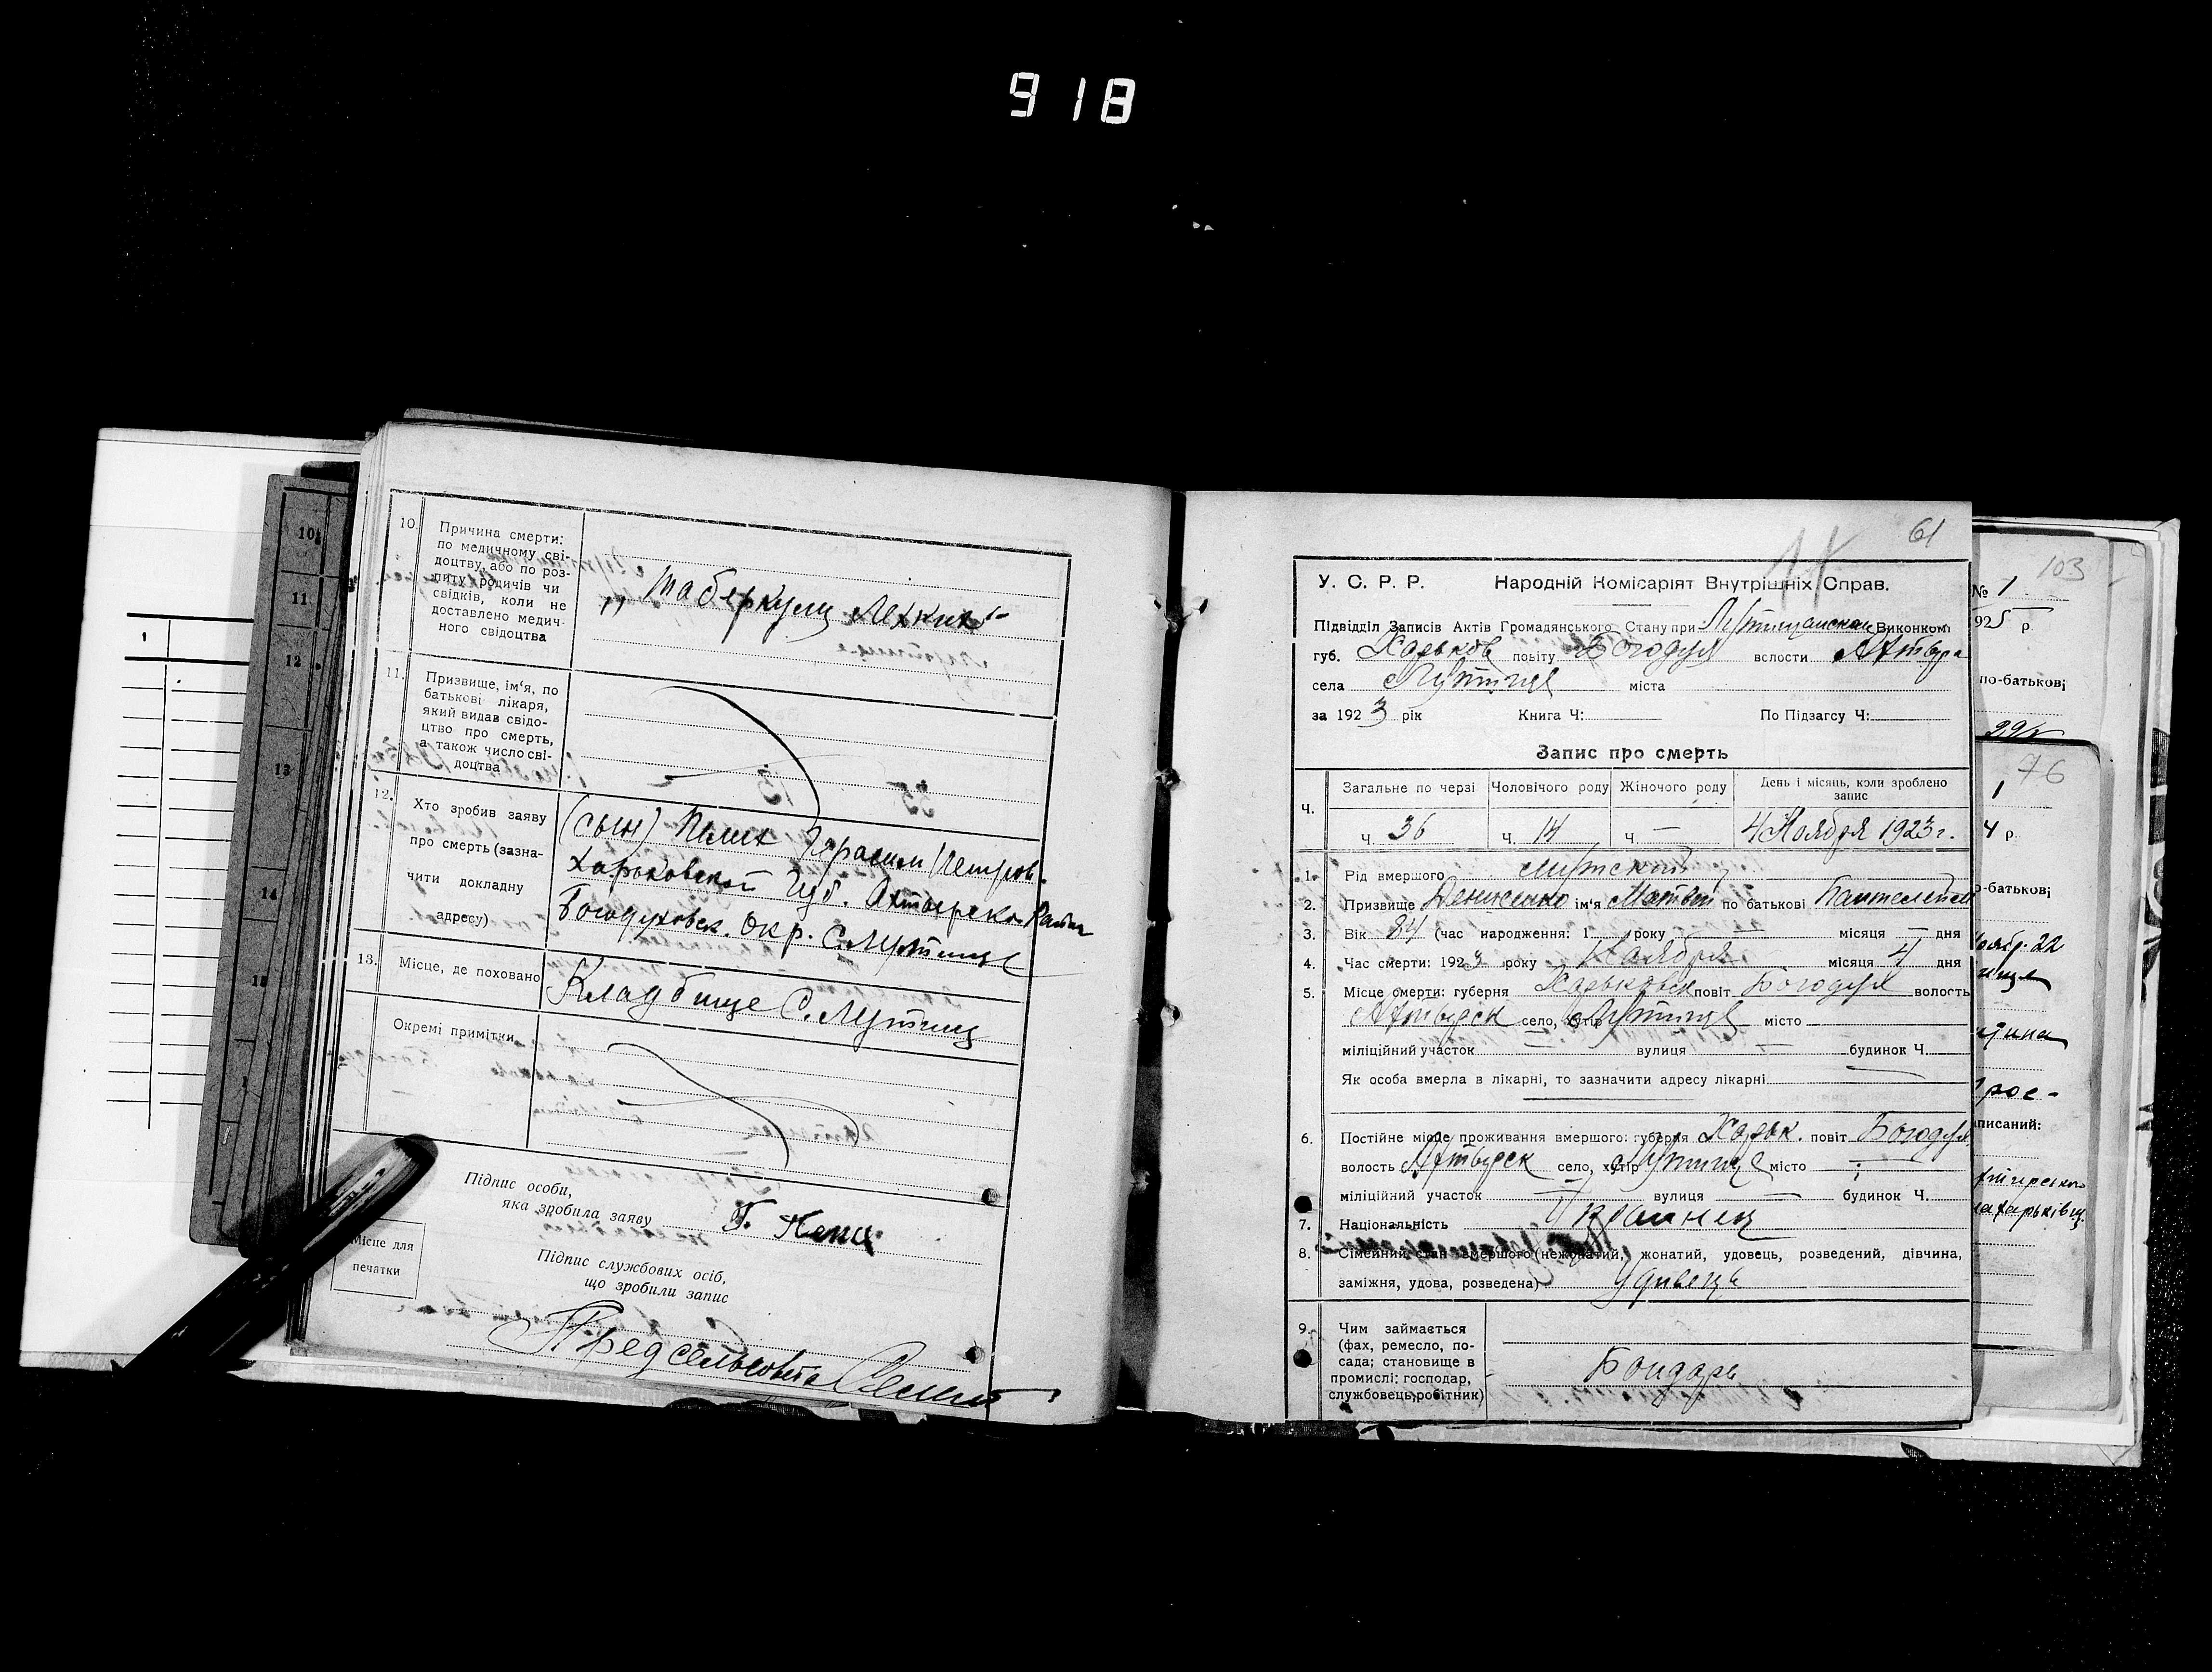 918
10.
Причина смерти:
по медичному сві-
доцтву, або по роз-
питу родичів чи
свідків, коли не
доставлено медич-
ного свідоцтва
„Таберкулц Лехких“
11.
Призвище, ім'я, по
батькові лікаря,
який видав свідо-
цтво про смерть,
а також число сві-
доцтва
12.
Хто зробив заяву
про смерть (зазна-
чити докладну
адресу)
(сын) Герасим Петров.
Харьковской Губ. Ахтырско. Район
Богодуховск. Окр. С. Лутище
13.
Місце, де поховано
Кладбище С. Лутищ
Окремі примітки
Підпис особи,
яка зробила заяву
Г.
Місце для
печатки
Підпис службових осіб,
що зробили запис
Пред сельсовета
10
11
12
13
14
1
61
У. С. Р. Р. Народній Комісаріят Внутрішніх Справ.
Підвідділ Записів Актів Громадянського Стану при Лутищанском Виконкомі
губ. Харьков повіту Богодух волости Ахтыр
села Лутище міста
за 1923 рік Книга Ч: По Підзагсу Ч:
Запис про смерть
Ч. Загальне по черзі Чоловічого роду Жіночого роду День і місяць, коли зроблено запис
ч. 36 ч. 14 ч. — 4 Ноября 1923 г.
1. Рід вмершого мужской
2. Призвище Денисенко ім'я Матвей по батькові Пантелейм
3. Вік 84 (час народження: 1 року — місяця — дня
4. Час смерти: 1923 року Ноября місяця 4 дня
5. Місце смерти: губерня Харьковск повіт Богодух волость
Ахтырск село, хутір Лутище місто
міліційний участок — вулиця — будинок Ч. —
Як особа вмерла в лікарні, то зазначити адресу лікарні
6. Постійне місце проживання вмершого: губерня Харьк. повіт Богодух
волость Ахтырск село, хутір Лутище місто —
міліційний участок — вулиця — будинок Ч.
7. Національність Украинец
8. Сімейний стан вмершого (нежонатий, жонатий, удовець, розведений, дівчина,
заміжня, удова, розведена) Удовець
9. Чим займається
(фах, ремесло, по-
сада; становище в
промислі: господар,
службовець, робітник)
Бондарь
103
№ 1
925 р
по-батькові
76
1
4 р
о-батькові
22
рос-
писаний: